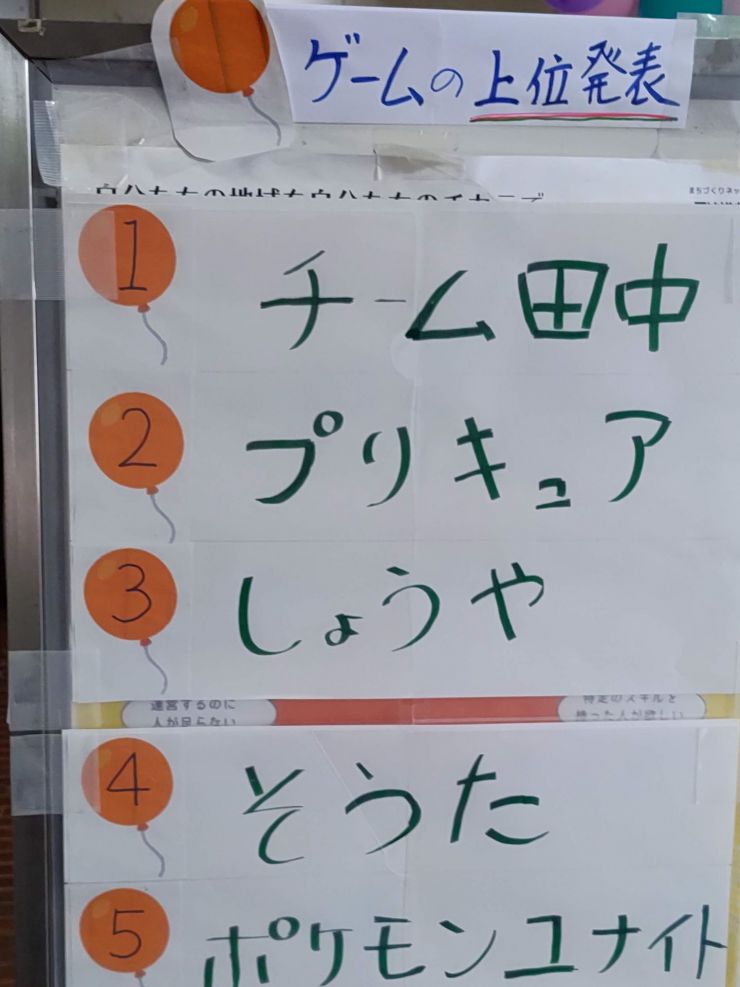 ゲームの上位発表
まちづくりネッ
1 チーム田中
2 プリキュア
3 しょうや
運営するのに
人が足らない
特定のスキルを
持った人が欲しい
4 そうた
5 ポケモンユナイト